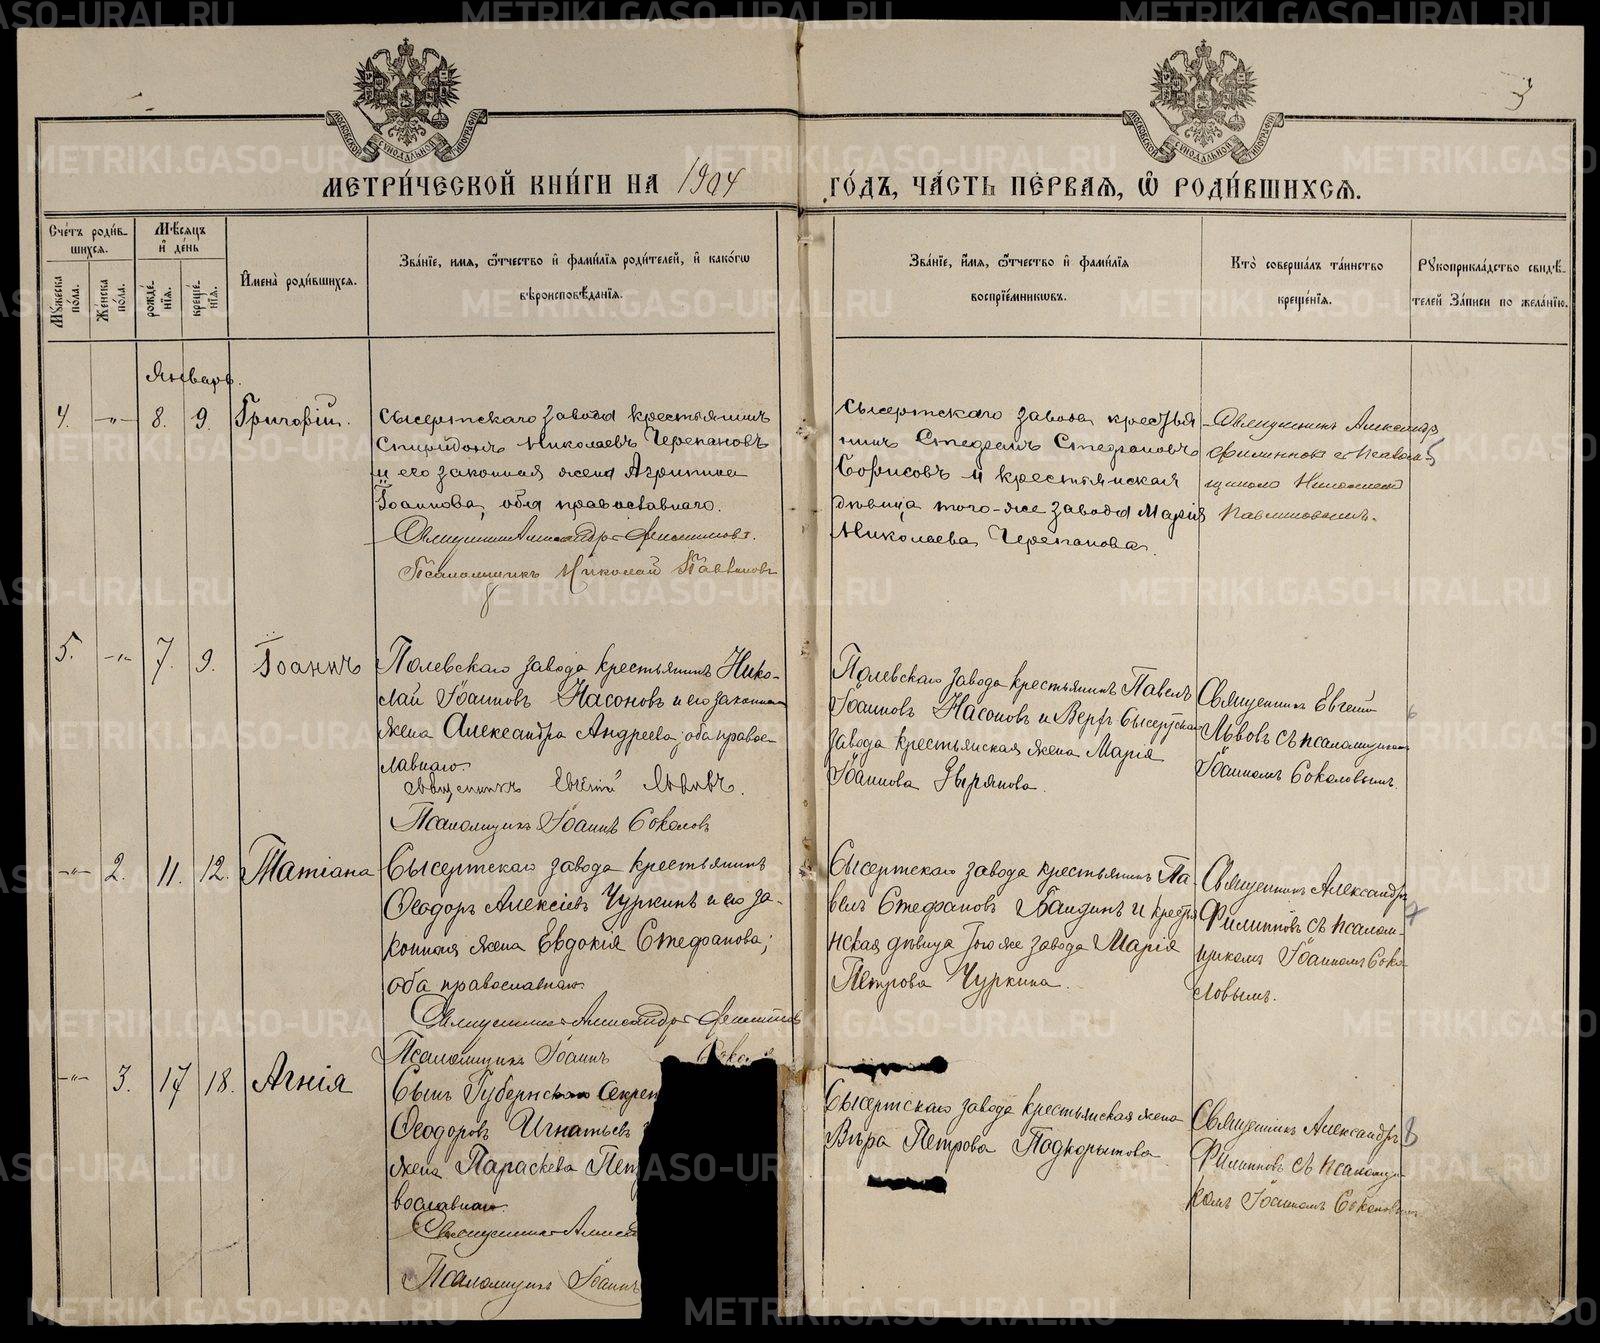 МЕТРИ́ЧЕСКОЙ КНИ́ГИ НА 1904 ГО́ДЪ, ЧА́СТЬ ПЕ́РВАѦ, Ѽ РОДИ́ВШИХСѦ.
МОСКОВСКОЙ СѴНОДАЛЬНОЙ ТИПОГРАФІИ
МОСКОВСКОЙ СѴНОДАЛЬНОЙ ТИПОГРАФІИ
3
Сче́тъ роди́в-
шихсѧ.
Мꙋ́жеска пола.
Же́нска по́ла.
Мѣ́сѧцъ
и҆ де́нь
рожде́-
нїѧ.
креще́-
нїѧ.
И҆мена̀ роди́вшихсѧ.
Зва́нїе, имѧ, ѻ҆́тчество и҆ фамилїѧ роди́телей, и҆ како́гѡ
вѣроисповѣ́данїѧ.
Зва́нїе, и҆́мѧ, ѻ҆́тчество и҆ фами́лїѧ
воспрїе́мникѡвъ.
Кто̀ соверша́лъ та́инство
креще́нїѧ.
Рꙋкоприкла́дство свидѣ́-
телей За́писи по жела́нїю.
Январь.
4. -"- 8. 9. Григорій.
Сысертскаго завода крестьянинъ
Спиридонъ Николаевъ Черепановъ
и его законная жена Агрипина
Іоаннова, оба православнаго.
Священникъ Александръ Филипповъ.
Псаломщикъ Николай
Сысертскаго завода крестья
нинъ Стефанъ Стефановъ
Борисовъ и крестьянская
дѣвица того-же завода Марія
Николаева Черепанова.
Священникъ Александръ
Филипповъ съ псалом-
щикомъ Николаемъ
5
5. -"- 7. 9. Іоаннъ
Полевскаго завода крестьянинъ Нико-
лай Іоанновъ Насоновъ и его законная
жена Александра Андреева, оба правос-
лавнаго.
Священникъ Евгеній Львовъ.
Псаломщикъ Іоаннъ Соколовъ
Полевскаго завода крестьянинъ Павелъ
Іоанновъ Насоновъ и Верхъ-Сысертскаго
завода крестьянская жена Марія
Іоаннова Зырянова.
Священникъ Евгеній
Львовъ съ псаломщикомъ
Іоанномъ Соколовымъ.
6
-"- 2. 11. 12. Татіана
Сысертскаго завода крестьянинъ
Ѳеодоръ Алексіевъ Чуркинъ и его за-
конная жена Евдокія Стефанова;
оба православнаго.
Священникъ Александръ Филипповъ
Псаломщикъ Іоаннъ
Сысертскаго завода крестьянинъ Па-
велъ Стефановъ Бандинъ и крестья
нская дѣвица того же завода Марія
Петрова Чуркина.
Священникъ Александръ
Филипповъ съ псалом-
щикомъ Іоанномъ Соко-
ловымъ.
7
-"- 3. 17 18. Агнія
Сынъ Губернскаго Секрет
Ѳеодоровъ Игнатьевъ
жена Параскева Пет
вославнаго.
Священникъ Алекса
Псаломщикъ Іоаннъ
Сысертскаго завода крестьянская жена
Вѣра Петрова Подкорытова
Священникъ Александръ
Филипповъ съ псаломщи-
комъ Іоанномъ Соколовымъ
8
METRIKI.GASO-URAL.RU